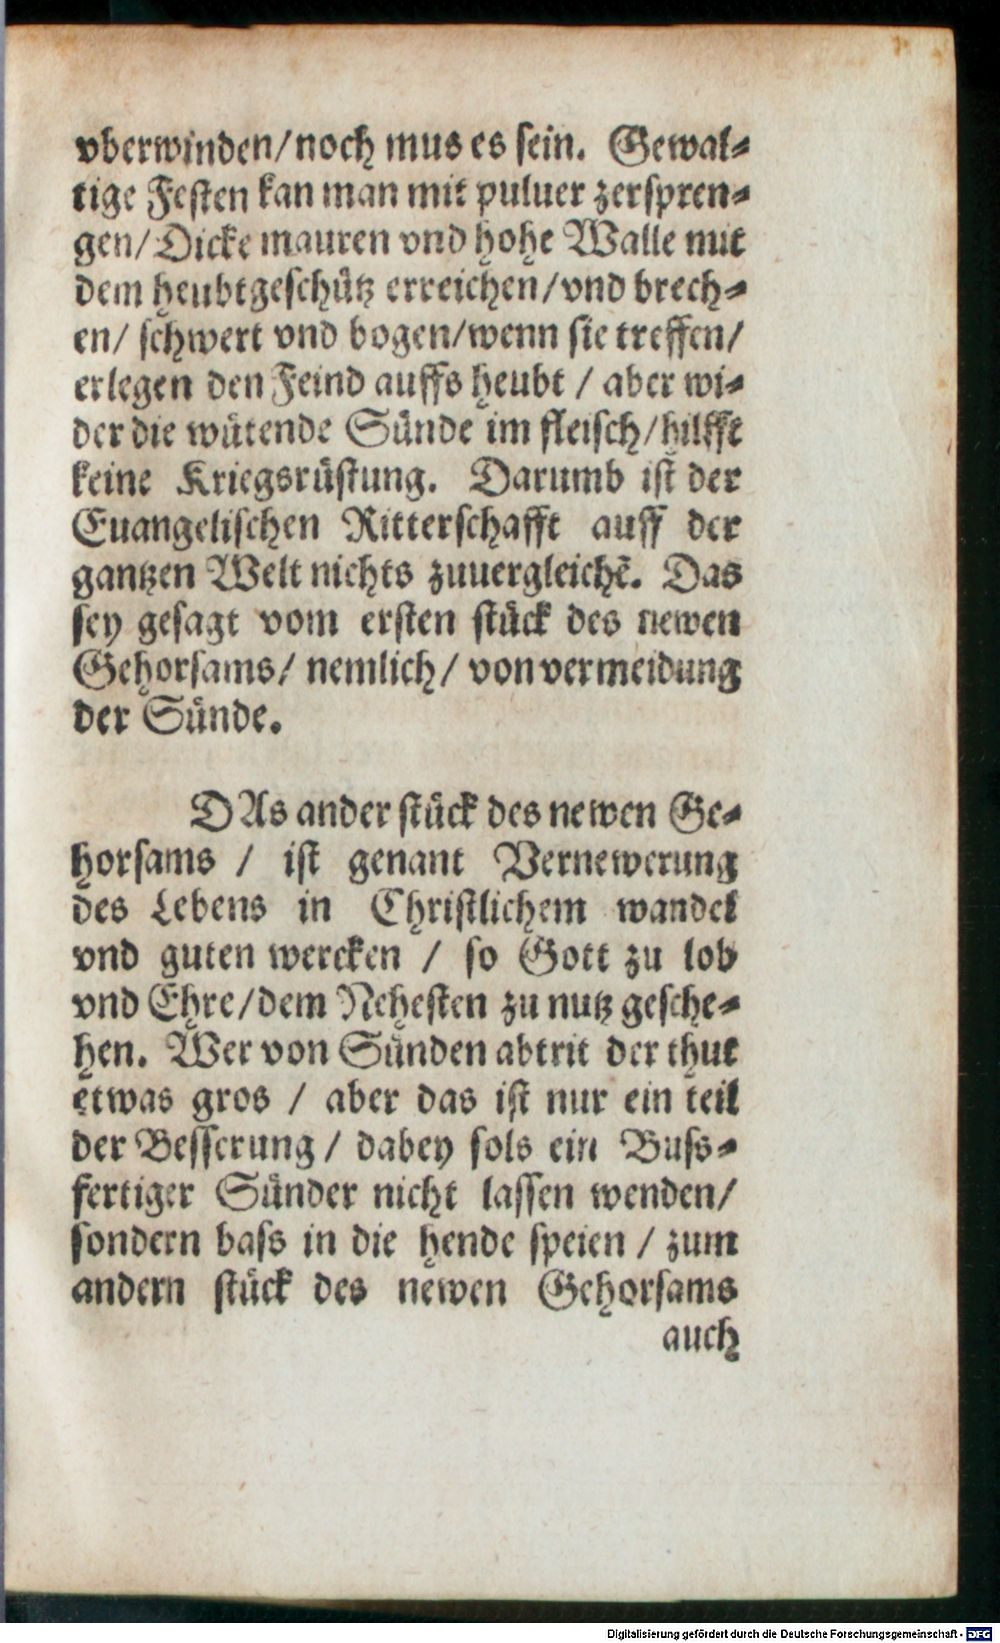 vberwinden/noch mus es sein. Gewal-
tige Festen kan man mit puluer zerspren-
gen/Dicke mauren vnd hohe Walle mit
dem heubtgeschütz erreichen/vnd brech-
en/ schwert vnd bogen/wenn sie treffen/
erlegen den Feind auffs heubt / aber wi-
der die wütende Sünde im fleisch/hilfft
keine Kriegsrüstung. Darumb ist der
Euangelischen Ritterschafft auff der
gantzen Welt nichts zuuergleichē. Das
sey gesagt vom ersten stück des newen
Gehorsams/ nemlich/ von vermeidung
der Sünde.
DAs ander stück des newen Ge-
horsams / ist genant Vernewerung
des Lebens in Christlichem wandel
vnd guten wercken / so Gott zu lob
vnd Ehre/dem Nehesten zu nutz gesche-
hen. Wer von Sünden abtrit der thut
etwas gros / aber das ist nur ein teil
der Besserung / dabey sols ein Buss-
fertiger Sünder nicht lassen wenden/
sondern bass in die hende speien / zum
andern stück des newen Gehorsams
auch
Digitalisierung gefördert durch die Deutsche Forschungsgemeinschaft - DFG